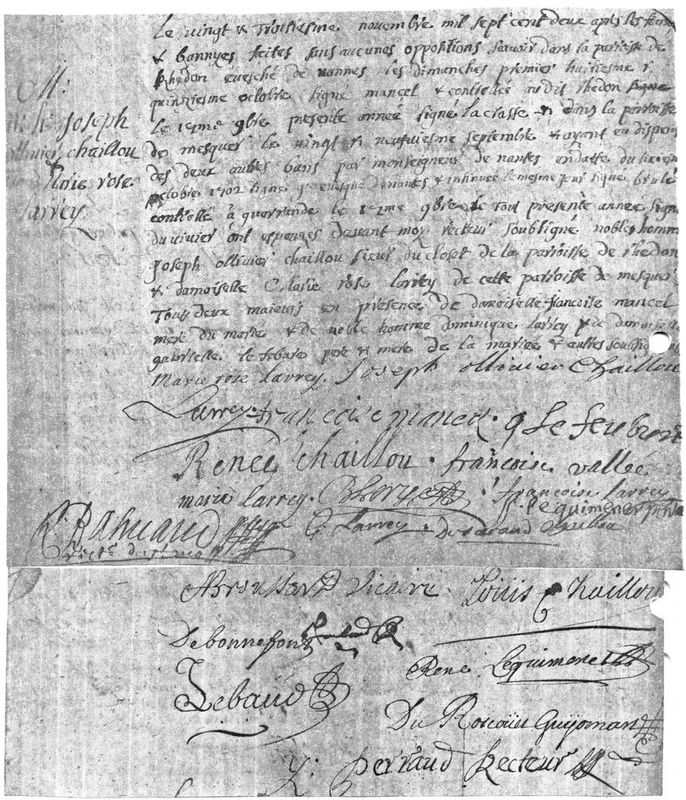 Le vingt & troisiesme novembre mil sept cent deux apres les
& bannyes faites sans aucunes oppositions scavoir dans la paroisse de
Rhedon evesché de vannes les dimanches premier huitiesme &
quinziesme octobre signe mancel & controllee audit rhedon
Le 9bre presente année signé la classe & dans la paroisse
de mesquer le vingt & neufviesme septembre & ayant eu dispense
des deux autres bans par monseigneur de nantes en datte du
octobre 1702 signe de nantes & insinuee le mesme jour signe brule
controllé à guerrande le 9bre le tout presente annee signe
du vivier ont espousés devant moy recteur soubsigne noble homme
Joseph ollivier chaillou sieur du closet de la parroisse de rhedon
& damoiselle Marie rose larrey de cette parroisse de mesquer
Tous deux majeurs en presence de damoiselle francoise mancel
mere du marie & de noble homme dominique larrey & de damoiselle
gabrielle le febure pere & mere de la mariee & autres soubsignes
M:
Joseph
ollivier chaillou
Marie rose
larrey
Marie rose Larrey. Joseph ollivier Chaillou
Larrey francoise mancel. g Le feubvre
Renee Chaillou. francoise vallée
marie larrey. francoise larrey
R. Bahuaud G. Larrey
Vicaire. Louis Chaillou
Debonnefont
Lebaud René Lequimener
Du Roscoüin Guyomar
Perraud Recteur